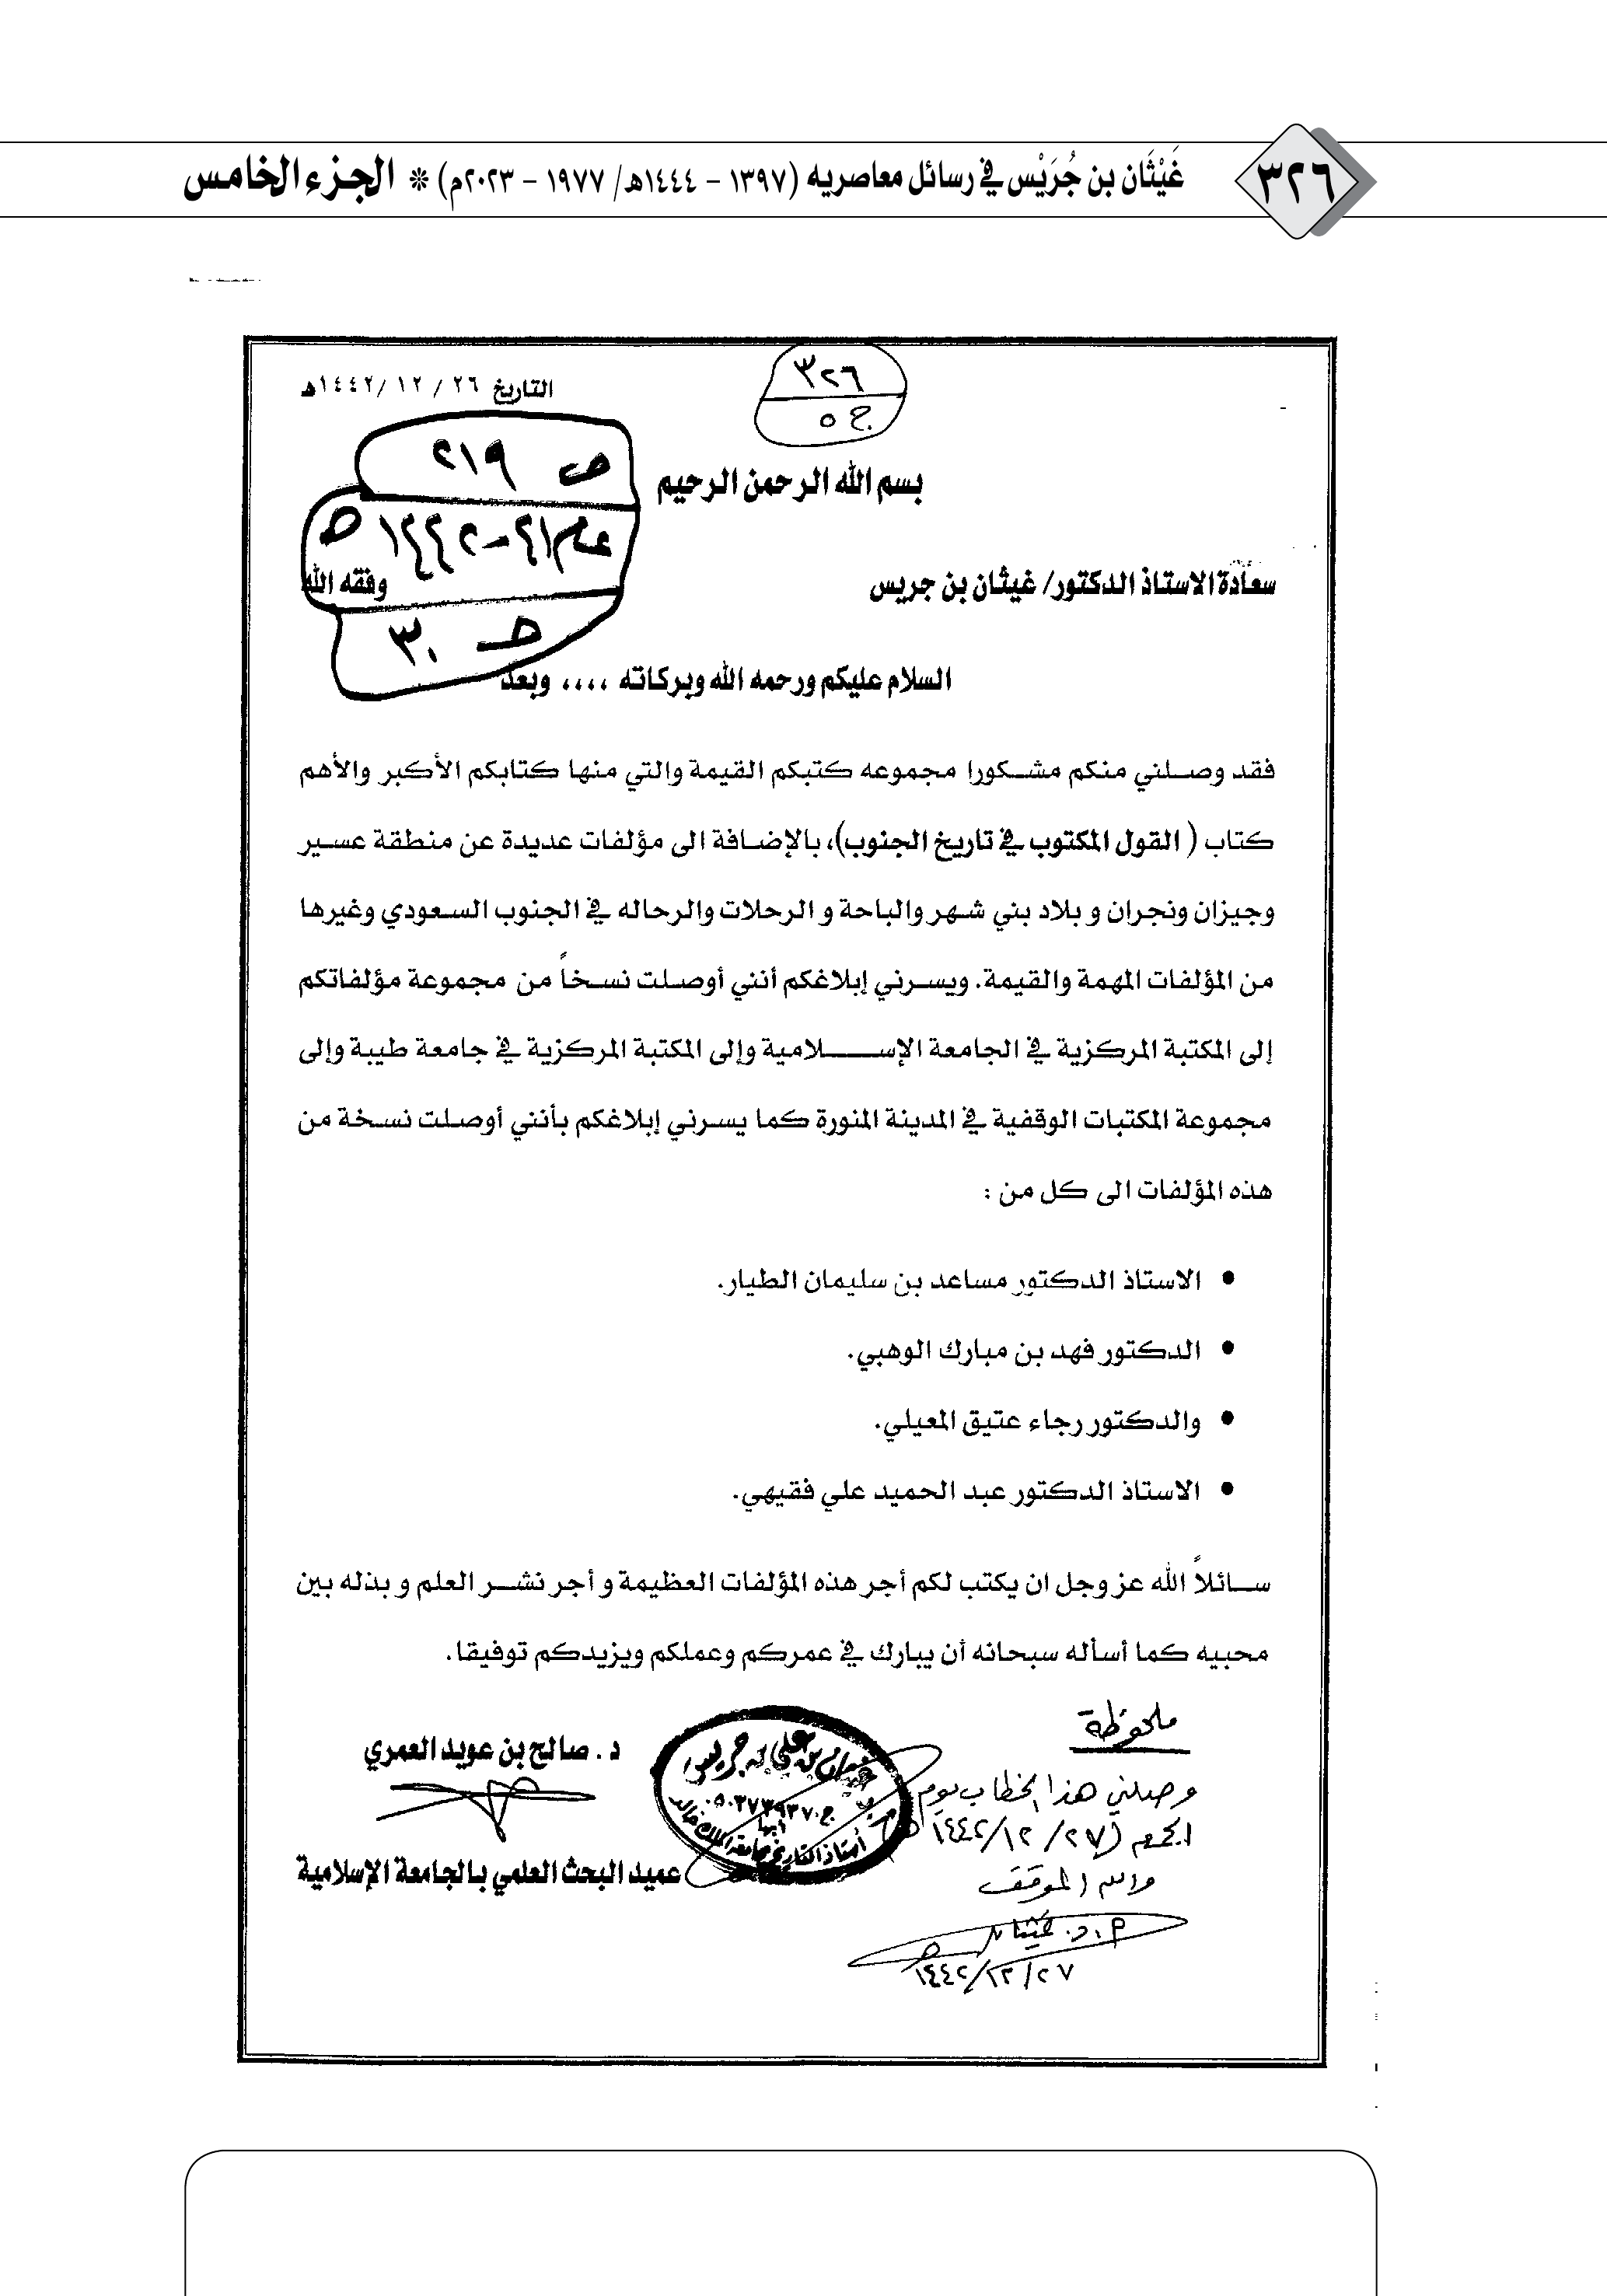 ٣٢٦
غَيْثَان بن جُرَيْس في رسائل معاصريه (١٣٩٧ - ١٤٤٤هـ/ ١٩٧٧ - ٢٠٢٣م) * الجزء الخامس
٣٢٦
ج ٥
التاريخ ٢٦ / ١٢ /١٤٤٢هـ
ص ٢١٩
عام ٢١-١٤٤٢هـ
حـ ٣٠
بسم الله الرحمن الرحيم
سعادة الاستاذ الدكتور/ غيثان بن جريس وفقه الله
السلام عليكم ورحمه الله وبركاته ،،،، وبعد
فقد وصلني منكم مشكورا مجموعه كتبكم القيمة والتي منها كتابكم الأكبر والأهم
كتاب ( القول المكتوب في تاريخ الجنوب)، بالإضافة الى مؤلفات عديدة عن منطقة عسير
وجيزان ونجران و بلاد بني شهر والباحة و الرحلات والرحاله في الجنوب السعودي وغيرها
من المؤلفات المهمة والقيمة. ويسرني إبلاغكم أنني أوصلت نسخاً من مجموعة مؤلفاتكم
إلى المكتبة المركزية في الجامعة الإسلامية وإلى المكتبة المركزية في جامعة طيبة وإلى
مجموعة المكتبات الوقفية في المدينة المنورة كما يسرني إبلاغكم بأنني أوصلت نسخة من
هذه المؤلفات الى كل من :
• الاستاذ الدكتور مساعد بن سليمان الطيار.
• الدكتور فهد بن مبارك الوهبي.
• والدكتور رجاء عتيق المعيلي.
• الاستاذ الدكتور عبد الحميد علي فقيهي.
سائلاً الله عز وجل ان يكتب لكم أجر هذه المؤلفات العظيمة و أجر نشر العلم و بذله بين
محبيه كما أسأله سبحانه أن يبارك في عمركم وعملكم ويزيدكم توفيقا.
د . صالح بن عويد العمري
عميد البحث العلمي بالجامعة الإسلامية
بن علي بن جريس
أبها
أستاذ التاريخ بجامعة الملك خالد
ملحوظة
وصلني هذا الخطاب يوم
الجمعة (٢٧/ ١٢/ ١٤٤٢هـ)
والله الموفق
أ.د. غيثان
٢٧/ ١٢/ ١٤٤٢هـ